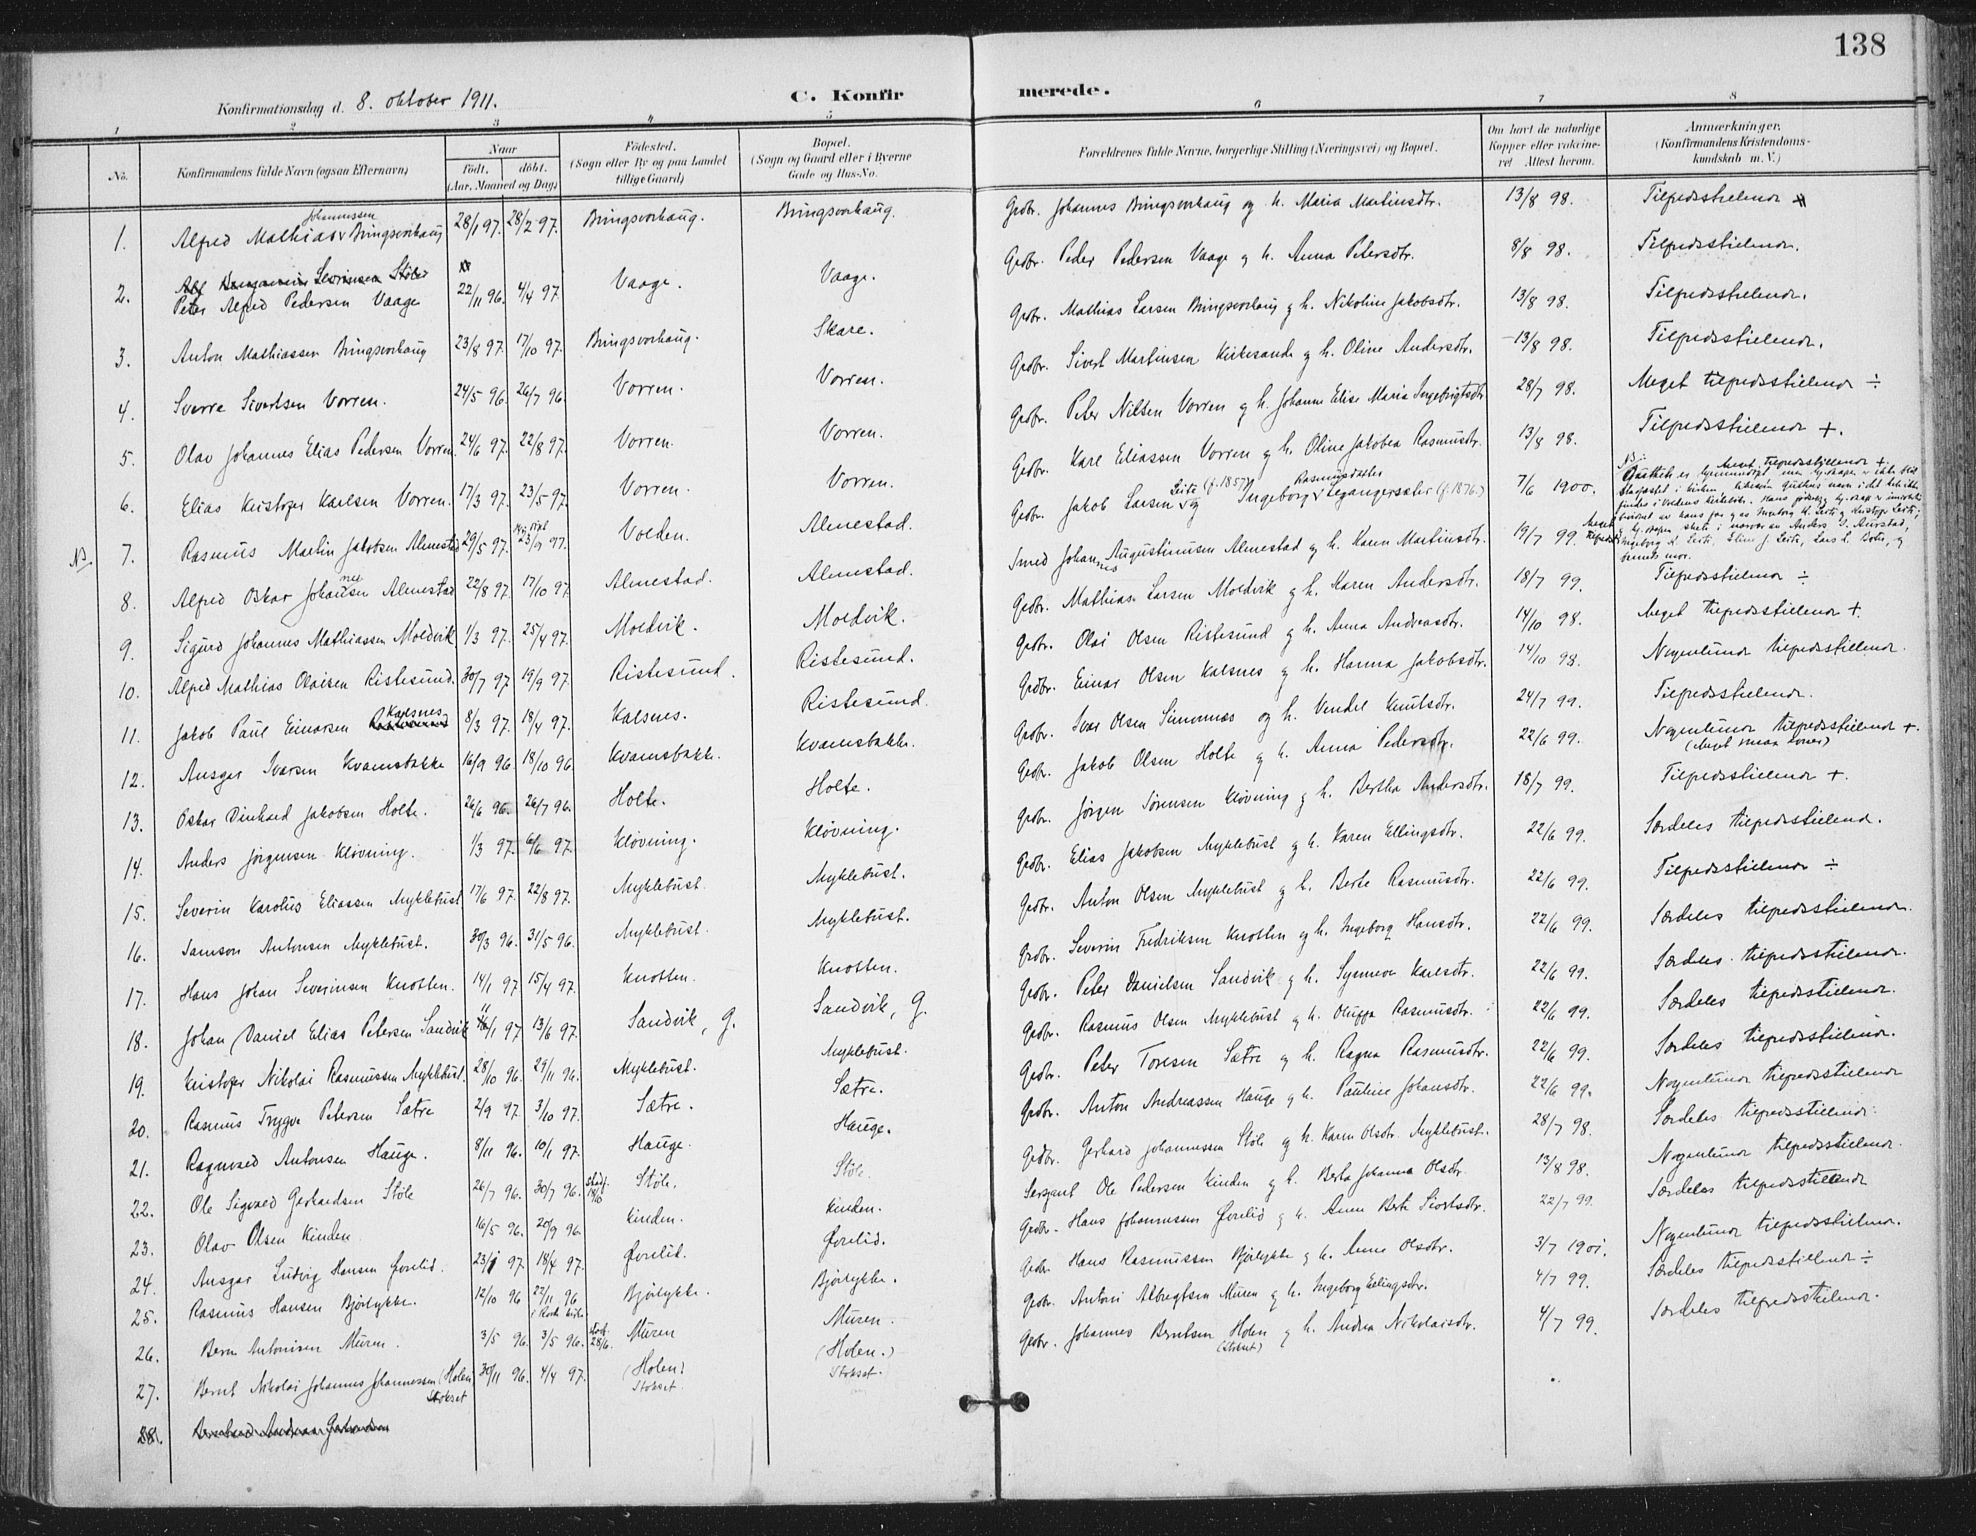 138
Konfirmationsdag d. 8. oktober 1911.
C. Konfirmerede.
1 2 3 4 5 6 7 8
No. Konfirmandens fulde Navn (ogsaa Efternavn) Naar födt. döbt. (Aar, Maaned og Dag) Födested. (Sogn eller By og paa Landet tillige Gaard) Bopæl. (Sogn og Gaard eller i Byerne Gade og Hus-No. Forældrenes fulde Navne, borgerlige Stilling (Næringsvei) og Bopæl. Om havt de naturlige Kopper eller vaccineret. Attest herom. Anmærkninger. (Konfirmandens Kristendomskundskab m. V.)
1. Alfred Mathias Johannessen Bringsvorhaug 28/1 97. 28/2 97. Bringsvorhaug. Bringsvorhaug. Grdbr. Johannes Bringsvorhaug og h. Maria Martinsdtr. 13/8 98. Tilfredsstillende
2. Peter Alfred Pedersen Vaage 22/11 96. 4/4 97. Vaage. Vaage. Grdbr. Peder Pedersen Vaage og h. Anna Petersdtr. 8/8 98. Tilfredsstillende.
3. Anton Mathiassen Bringsvorhaug 23/8 97. 17/10 97. Bringsvorhaug. Skare. Grdbr. Mathias Larsen Bringsvorhaug og h. Nikoline Jakobsdtr. 13/8 98. Tilfredsstillende.
4. Sverre Sivertsen Vorren. 24/5 96. 26/7 96. Vorren. Vorren. Grdbr. Sivert Martinsen Kirkesande og h. Oline Andersdtr. 13/8 98. Tilfredsstillende.
5. Olav Johannes Elias Pedersen Vorren. 24/6 97. 22/8 97. Vorren. Vorren. Grdbr. Peter Nilsen Vorren og h. Johanne Elise Maria Ingebrigtsdtr 28/7 98. Meget tilfredsstillende ÷
6. Elias Kristofer Karlsen Vorren. 17/3 97. 23/5 97. Vorren. Vorren. Grdbr. Karl Eliassen Vorren og h. Oline Jakobea Rasmusdtr. 13/8 98. Tilfredsstillende +.
NB. 7. Rasmus Martin Jakobsen Almestad 29/5 97. Volden. Almestad. Grdbr. Jakob Larsen Leite (f. 1857) og Ingeborg Rasmusdatter Leganger (f. 1876.) 7/6 1900. Meget tilfredsstillende +
8. Alfred Oskar Johannesen Almestad 22/8 97. 17/10 97. Almestad. Almestad. Smed Johannes Augustinusen Almestad og h. Karen Martinsdtr. 19/7 99. Meget tilfredsst.
9. Sigurd Johannes Mathiassen Moldvik 1/3 97. 25/4 97. Moldvik. Moldvik. Grdbr. Mathias Larsen Moldvik og h. Karen Andersdtr. 18/7 99. Tilfredsstillende ÷
10. Alfred Mathias Olaisen Ristesund. 30/7 97. 19/9 97. Ristesund. Ristesund. Grdbr. Olai Olsen Ristesund og h. Anna Andreasdtr. 14/10 98. Meget tilfredsstillende +
11. Jakob Paul Einarsen Kalsnes 8/3 97. 18/4 97. Kalsnes. Ristesund. Grdbr. Einar Olsen Kalsnes og h. Hanna Jakobsdtr. 14/10 98. Nogenlunde tilfredsstillende.
12. Ansgar Ivarsen Kvamsbakke 16/9 96. 18/10 96 Kvamsbakke. Kvamsbakke. Grdbr. Ivar Olsen Simonnes og h. Vendel Knutsdtr. 24/7 99. Tilfredsstillende.
13. Oskar Dinhard Jakobsen Holte. 26/6 96. 26/7 96. Holte. Holte. Grdbr. Jakob Olsen Holte og h. Anna Pedersdtr. 22/6 99. Nogenlunde tilfredsstillende +
14. Anders Jørgensen Kløvning. 1/3 97. 6/6 97. Kløvning. Kløvning. Grdbr. Jørgen Sørensen Kløvning og h. Bertha Andersdtr. 18/7 99. Tilfredsstillende +.
15. Severin Karolus Eliassen Myklebust 17/6 97. 22/8 97. Myklebust. Myklebust. Grdbr. Elias Jakobsen Myklebust og h. Karen Ellingsdtr. 22/6 99. Særdeles tilfredsstillend.
16. Samson Antonsen Myklebust. 30/3 96. 31/5 96. Myklebust. Myklebust. Grdbr. Anton Olsen Myklebust og h. Berte Rasmusdtr. 22/6 99. Tilfredsstillende ÷
17. Hans Johan Severinsen Knotten. 14/1 97 15/4 97. Knotten. Knotten. Grdbr. Severin Fredriksen Knotten og h. Ingeborg Hansdtr. 22/6 99. Særdeles tilfredsstillende.
18. Johan Daniel Elias Petersen Sandvik 16/1 97 13/6 97. Sandvik, G. Sandvik, G. Grdbr. Peter Danielsen Sandvik og h. Synneva Karlsdtr. 22/6 99. Særdeles tilfredsstillende.
19. Kristofer Nikolai Rasmussen Myklebust. 28/10 96. 29/11 96. Myklebust. Myklebust. Grdbr. Rasmus Olsen Myklebust og h. Oluffa Rasmusdtr. 22/6 99. Særdeles tilfredsstillende.
20. Rasmus Trygve Petersen Sætre 2/9 97. 3/10 97. Sætre. Sætre. Grdbr. Peter Toresen Sætre og h. Ragna Rasmusdtr. 22/6 99. Særdeles tilfredsstillende.
21. Ragnvald Antonsen Hauge. 8/11 96. 10/1 97. Hauge. Hauge. Grdbr. Anton Andreassen Hauge og h. Pauline Johansdtr. 22/6 99. Nogenlunde tilfredsstillende
22. Ole Sigvald Gerhardsen Støle 26/7 96. 30/7 96. Støle. Støle. Grdbr. Gerhard Johannessen Støle og h. Karen Olsdtr. Myklebust. 28/7 98. Særdeles tilfredsstillende.
23. Olav Olsen Kinden 16/5 96. 20/9 96. Kinden. Kinden. Sergeant Ole Pedersen Kinden og h. Berta Johanna Olsdtr. 13/8 98. Nogenlunde tilfredsstillende.
24. Ansgar Ludvig Hansen Ørelid. 23/1 97. 18/4 97. Ørelid. Ørelid. Grdbr. Hans Johannessen Ørelid og h. Anne Berte Sivertsdtr. 22/7 99. Særdeles tilfredsstillende
25. Rasmus Hansen Bjørlykke. 12/10 96 22/11 96 Bjørlykke. Bjørlykke. Grdbr. Hans Rasmussen Bjørlykke og h. Anne Olsdtr. 3/7 1901. Nogenlunde tilfredsstillende.
26. Bern Antonisen Muren. 3/5 96. 3/5 96. stadf. 28/6. Muren Muren. Grdbr. Antoni Albregtsen Muren og h. Ingeborg Ellingsdtr. 4/7 99. Særdeles tilfredsstillende ÷
27. Bernt Nikolai Johannes Johannessen (Holen) Stokset 30/11 96. 4/4 97. (Holen) Stokset. (Holen.) Stokset. Grdbr. Johannes Berntsen Holen (Stokset) og h. Andrea Nikolaisdtr. 4/7 99. Særdeles tilfredsstillende.
28.